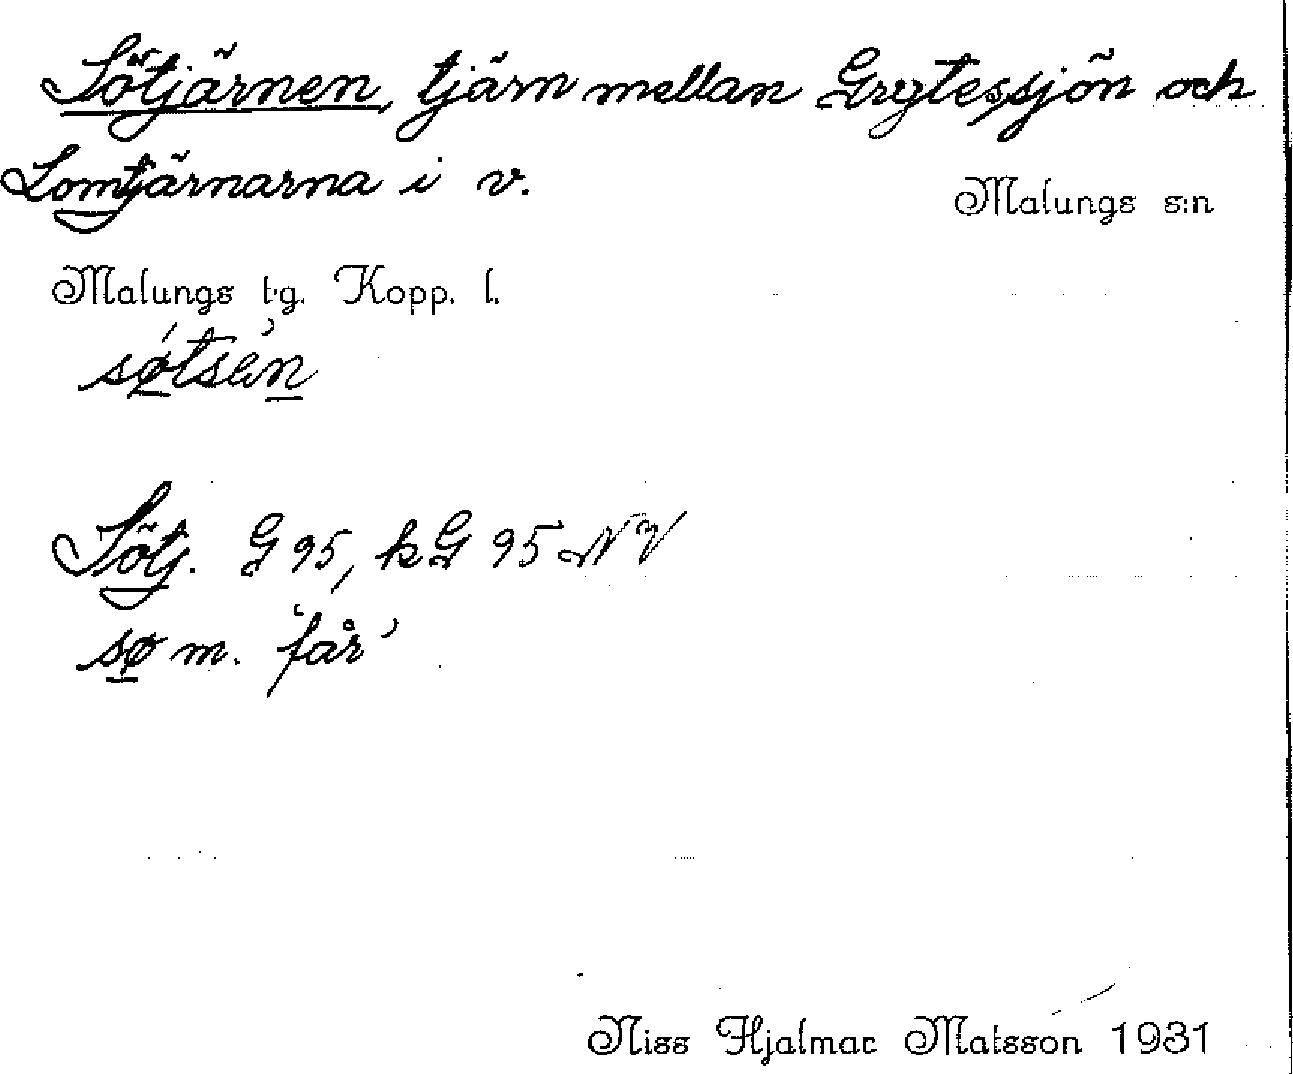 Sötjärnen, tjärn mellan Grytessjön och
Lomtjärnarna i v.
Malungs s:n
Malungs t.g. Kopp. l.
søtsän
Sötj. G 95, kG 95 NV
sø m. 'får'
Niss Hjalmar Matsson 1931